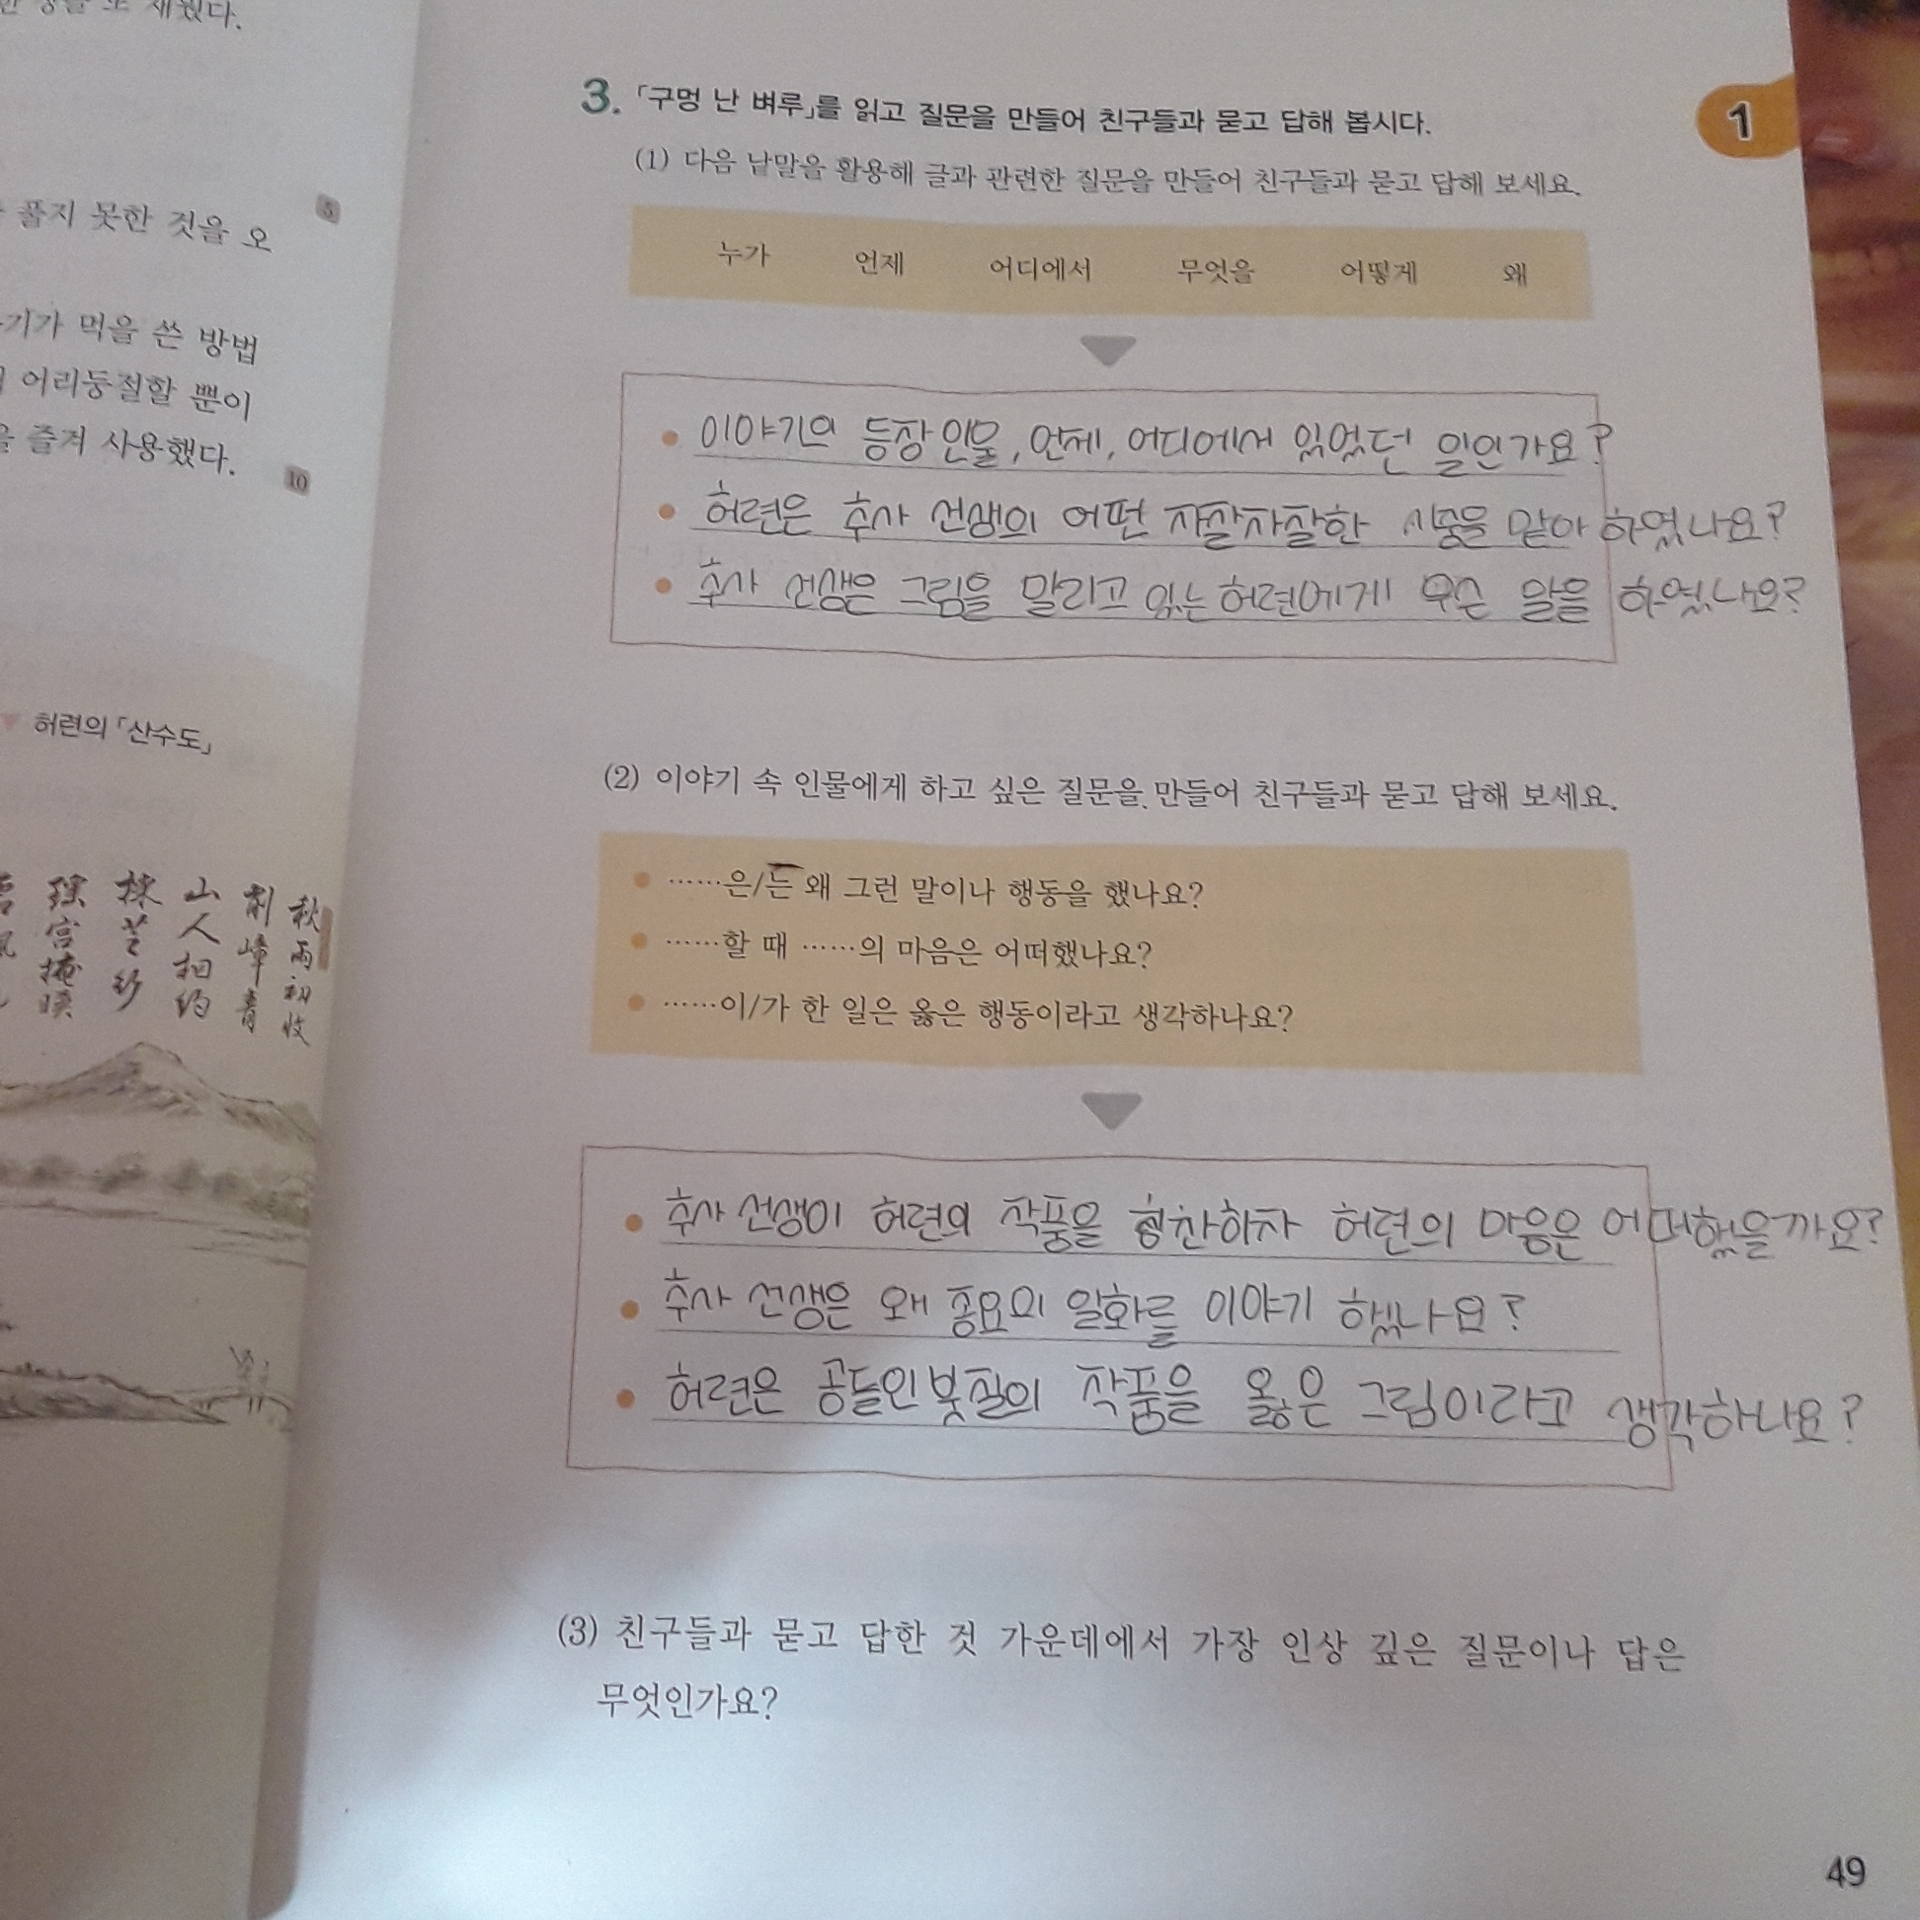 풀지 못한 것을 오
5
기가 먹을 쓴 방법
어리둥절할 뿐이
즐겨 사용했다.
10
허련의 「산수도」
秋雨初收
削嶂青
山人相約
採芝
1
3. 「구멍 난 벼루」를 읽고 질문을 만들어 친구들과 묻고 답해 봅시다.
(1) 다음 낱말을 활용해 글과 관련한 질문을 만들어 친구들과 묻고 답해 보세요.
누가 언제 어디에서 무엇을 어떻게 왜
이야기의 등장인물, 언제, 어디에서 있었던 일인가요?
허련은 추사 선생의 어떤 자잘자잘한 시중을 맡아 하였나요?
추사 선생은 그림을 말리고 있는 허련에게 무슨 말을 하였나요?
(2) 이야기 속 인물에게 하고 싶은 질문을 만들어 친구들과 묻고 답해 보세요.
……은/는 왜 그런 말이나 행동을 했나요?
……할 때 ……의 마음은 어떠했나요?
……이/가 한 일은 옳은 행동이라고 생각하나요?
추사 선생이 허련의 작품을 칭찬하자 허련의 마음은 어떠했을까요?
추사 선생은 왜 종요의 일화를 이야기 했나요?
허련은 공들인 붓질의 작품을 옳은 그림이라고 생각하나요?
(3) 친구들과 묻고 답한 것 가운데에서 가장 인상 깊은 질문이나 답은
무엇인가요?
49